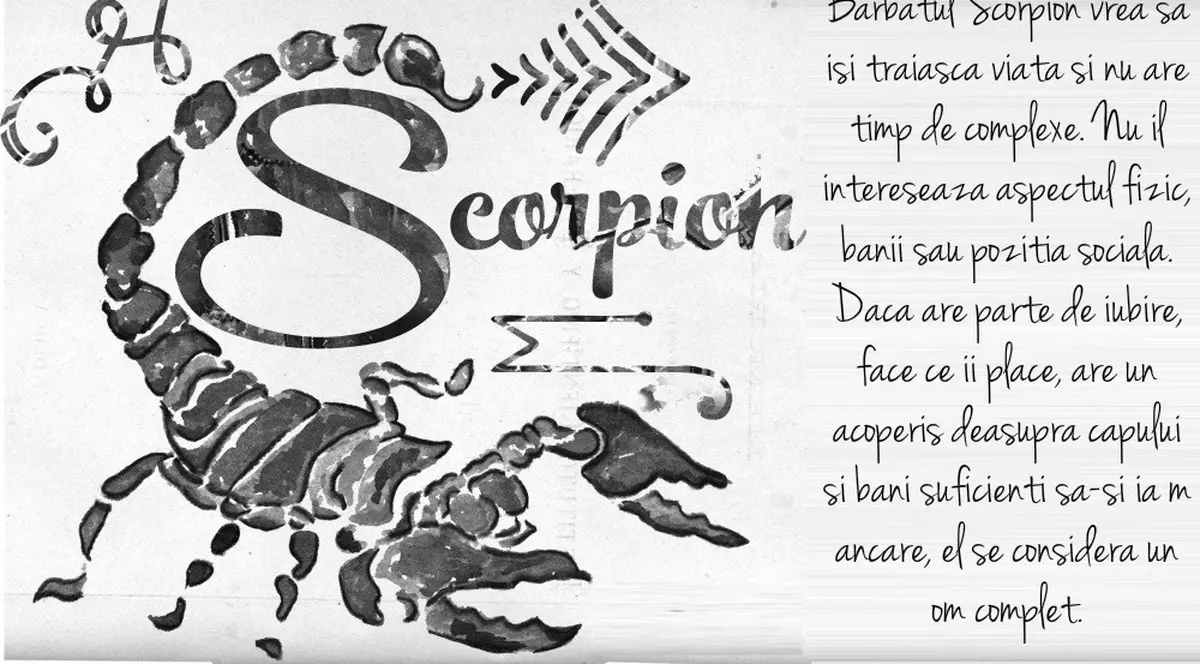 Scorpion
Barbatul Scorpion vrea sa
isi traiasca viata si nu are
timp de complexe. Nu il
intereseaza aspectul fizic,
banii sau pozitia sociala.
Daca are parte de iubire,
face ce ii place, are un
acoperis deasupra capului
si bani suficienti sa-si ia m
ancare, el se considera un
om complet.